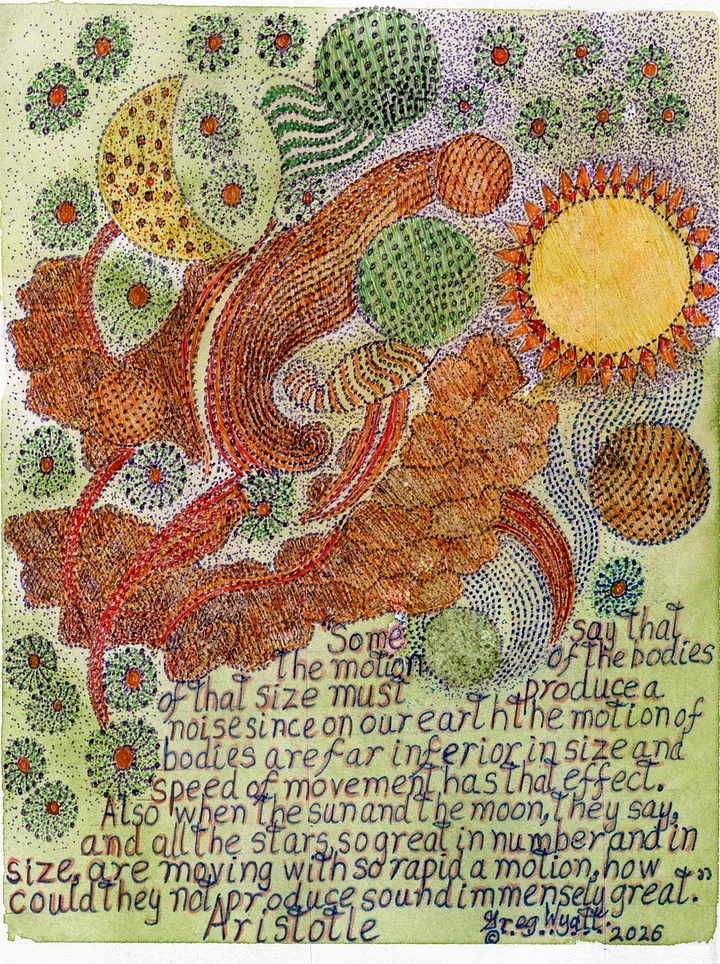 "Some say that
the motion of the bodies
of that size must produce a
noise since on our earth the motion of
bodies are far inferior in size and
speed of movement has that effect.
Also when the sun and the moon, they say,
and all the stars, so great in number and in
size, are moving with so rapid a motion, how
could they not produce sound immensely great."
Aristotle
© Greg Wyatt 2026